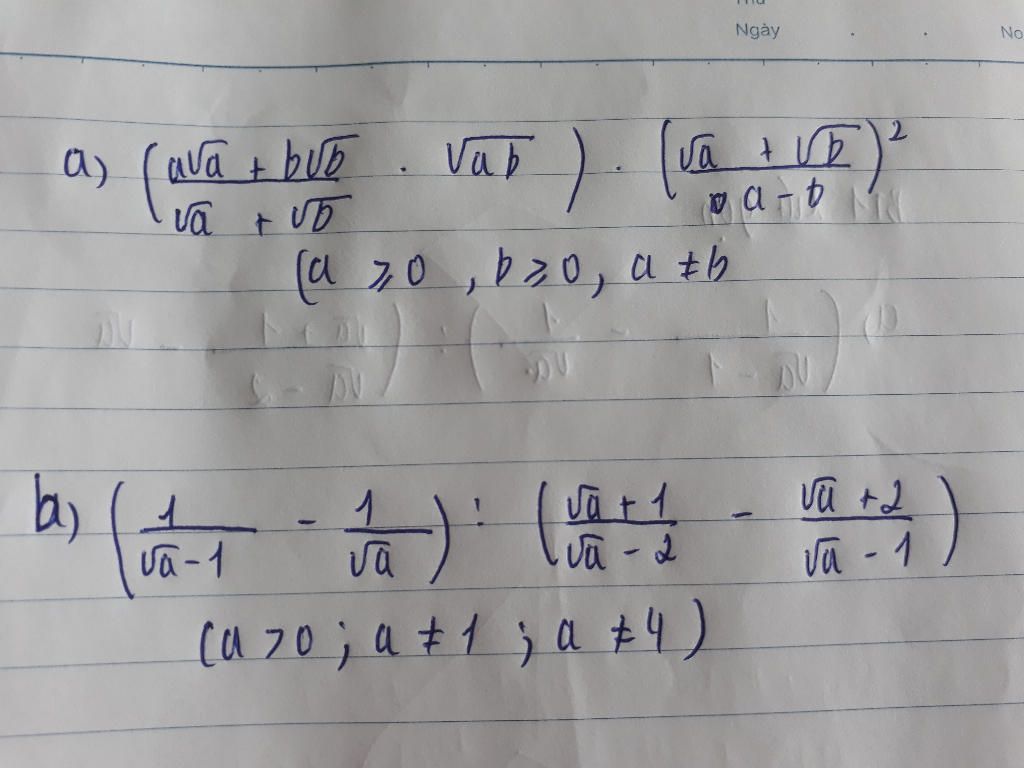 Ngày
No
a) (a√a + b√b / √a + √b . √ab) . (√a + √b / a - b)²
(a ⩾ 0, b ⩾ 0, a ≠ b
b) (1 / √a - 1 - 1 / √a) : (√a + 1 / √a - 2 - √a + 2 / √a - 1)
(a > 0 ; a ≠ 1 ; a ≠ 4)